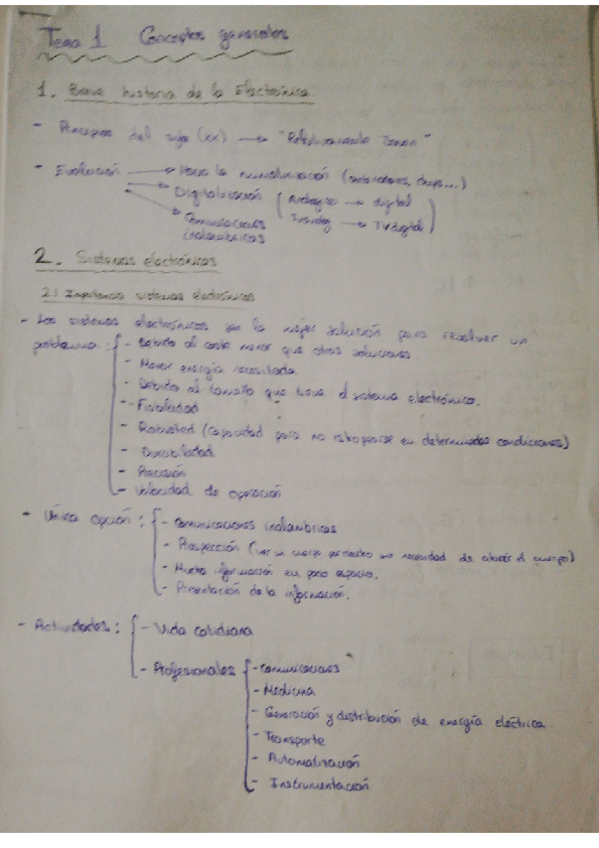 Tema 1 Conceptos generales
1. Breve historia de la Electrónica
- Principios del siglo (XX) →
- Evolución → Hacia la miniaturización (ordenadores, chips...)
→ Digitalización ( Analógico → digital
→ Comunicaciones inalámbricas Tv analog → TV digital )
2. Sistemas electrónicos
2.1 Importancia sistemas electrónicos
- Los sistemas electrónicos son la mejor solución para resolver un
problema: { - Debido al coste menor que otras soluciones.
- Menor energía necesitada
- Debido al tamaño que tiene el sistema electrónico.
- Fiabilidad
- Robusted (capacidad para no estropearse en determinadas condiciones)
- Durabilidad
- Precisión
- Velocidad de operación
- Única opción: { - Comunicaciones inalámbricas
- Prospección (ver un cuerpo por dentro sin necesidad de abrir el cuerpo)
- Mucha información en poco espacio.
- Presentación de la información.
- Actividades: { - Vida cotidiana
- Profesionales { - Comunicaciones
- Medicina
- Generación y distribución de energía eléctrica
- Transporte
- Automatización
- Instrumentación